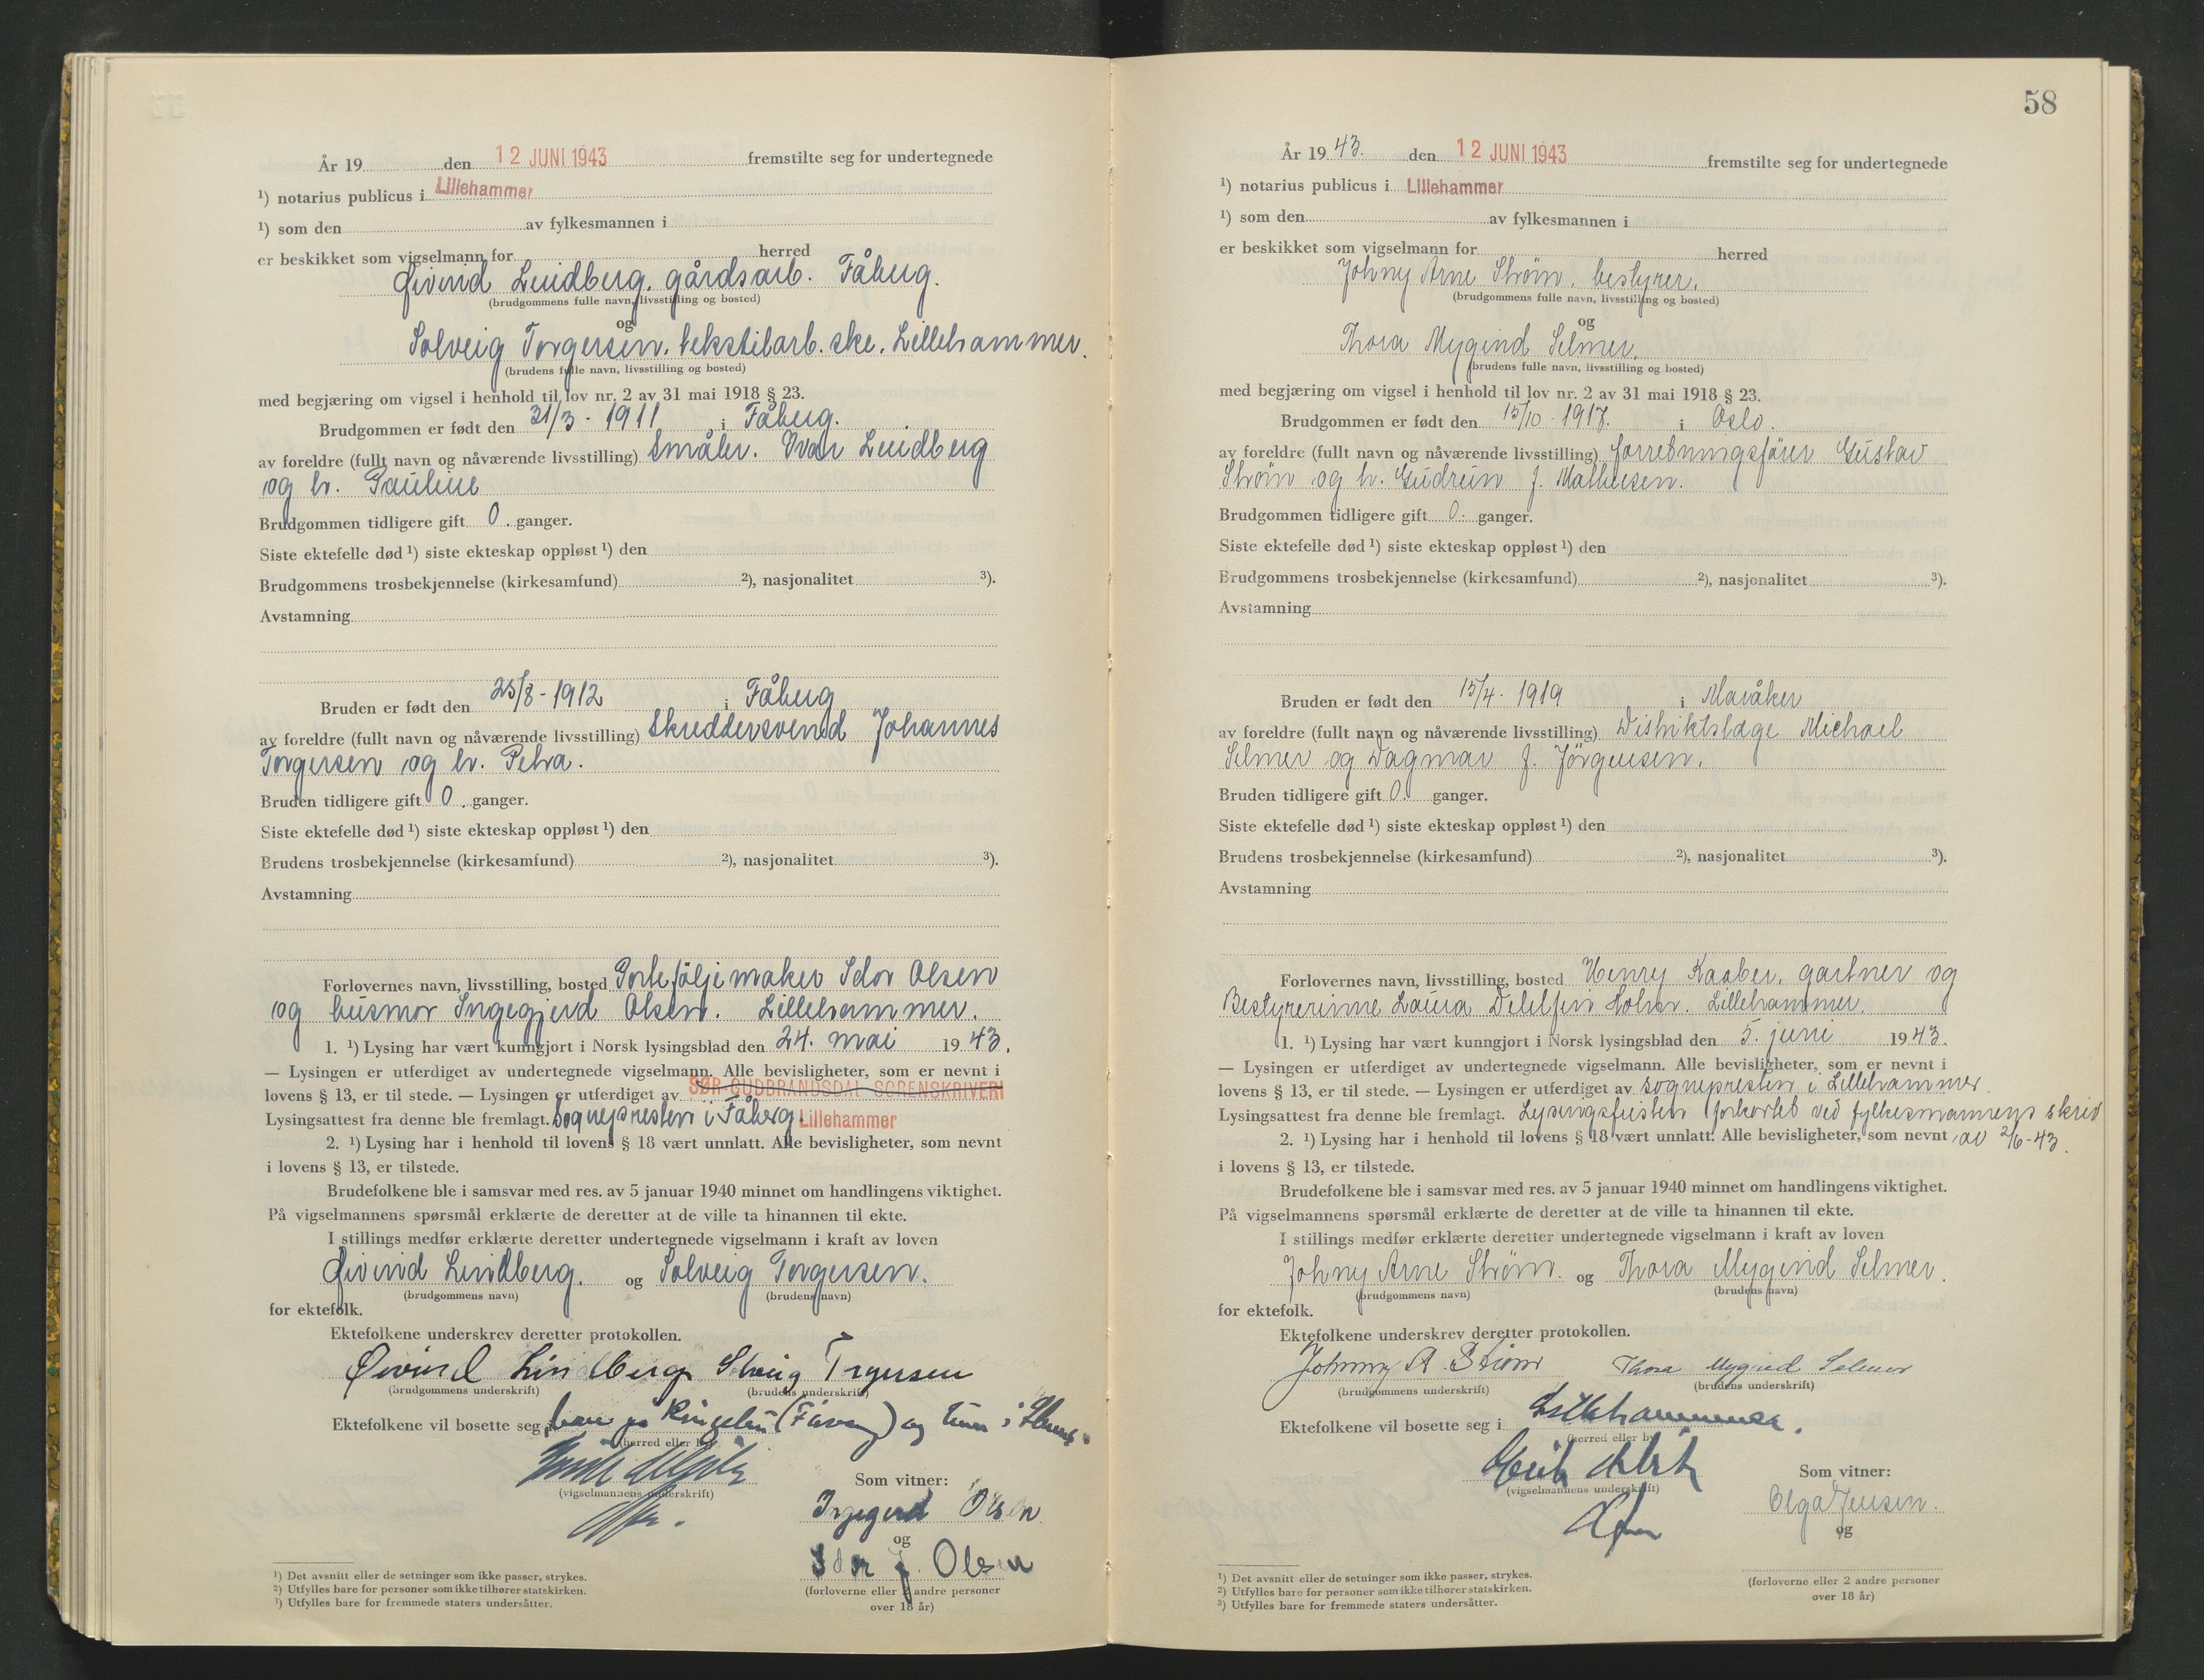 År 19 den 12 JUNI 1943 fremstilte seg for undertegnede
¹) notarius publicus i Lillehammer
¹) som den av fylkesmannen i
er beskikket som vigselmann for herred
Øivind Lindberg, gårdsarb. Fåberg.
(brudgommens fulle navn, livsstilling og bosted)
og
Solveig Torgersen, tekstilarb.ske, Lillehammer.
(brudens fulle navn, livsstilling og bosted)
med begjæring om vigsel i henhold til lov nr. 2 av 31 mai 1918 § 23.
Brudgommen er født den 31/3 - 1911 i Fåberg.
av foreldre (fullt navn og nåværende livsstilling) småbr. Ivar Lindberg
og h. Pauline
Brudgommen tidligere gift 0. ganger.
Siste ektefelle død ¹) siste ekteskap oppløst ¹) den
Brudgommens trosbekjennelse (kirkesamfund) ²), nasjonalitet ³).
Avstamning
Bruden er født den 25/8 - 1912 i Fåberg
av foreldre (fullt navn og nåværende livsstilling) Skreddersvend Johannes
Torgersen og h. Petra.
Bruden tidligere gift 0. ganger.
Siste ektefelle død ¹) siste ekteskap oppløst ¹) den
Brudens trosbekjennelse (kirkesamfund) ²), nasjonalitet ³).
Avstamning
Forlovernes navn, livsstilling, bosted Porteføljemaker Idor Olsen
og husmor Ingegjerd Olsen. Lillehammer.
1. ¹) Lysing har vært kunngjort i Norsk lysingsblad den 24. mai 1943.
— Lysingen er utferdiget av undertegnede vigselmann. Alle bevisligheter, som er nevnt i
lovens § 13, er til stede. — Lysingen er utferdiget av SØR-GUDBRANDSDAL SORENSKRIVERI
Lysingsattest fra denne ble fremlagt. Sognepresten i Fåberg Lillehammer
2. ¹) Lysing har i henhold til lovens § 18 vært unnlatt. Alle bevisligheter, som nevnt
i lovens § 13, er tilstede.
Brudefolkene ble i samsvar med res. av 5 januar 1940 minnet om handlingens viktighet.
På vigselmannens spørsmål erklærte de deretter at de ville ta hinannen til ekte.
I stillings medfør erklærte deretter undertegnede vigselmann i kraft av loven
Øivind Lindberg. og Solveig Torgersen.
(brudgommens navn) (brudens navn)
for ektefolk.
Ektefolkene underskrev deretter protokollen.
Øivind Lindberg Solveig Torgersen
(brudgommens underskrift) (brudens underskrift)
Ektefolkene vil bosette seg i
(herred eller by)
(vigselmannens underskrift)
Som vitner:
Ingegerd Olsen
og
Idor J. Olsen
(forloverne eller 2 andre personer
over 18 år)
¹) Det avsnitt eller de setninger som ikke passer, strykes.
²) Utfylles bare for personer som ikke tilhører statskirken.
³) Utfylles bare for fremmede staters undersåtter.
58
År 1943. den 12 JUNI 1943 fremstilte seg for undertegnede
¹) notarius publicus i Lillehammer
¹) som den av fylkesmannen i
er beskikket som vigselmann for herred
Johny Arne Strøm, bestyrer.
(brudgommens fulle navn, livsstilling og bosted)
og
Thora Mygind Selmer.
(brudens fulle navn, livsstilling og bosted)
med begjæring om vigsel i henhold til lov nr. 2 av 31 mai 1918 § 23.
Brudgommen er født den 15/10 - 1917. i Oslo.
av foreldre (fullt navn og nåværende livsstilling) forretningsfører Gustav
Strøm og h. Gudrun f. Mathiesen.
Brudgommen tidligere gift 0. ganger.
Siste ektefelle død ¹) siste ekteskap oppløst ¹) den
Brudgommens trosbekjennelse (kirkesamfund) ²), nasjonalitet ³).
Avstamning
Bruden er født den 15/4 - 1919 i Meråker
av foreldre (fullt navn og nåværende livsstilling) Distriktslæge Michael
Selmer og Dagmar f. Jörgensen.
Bruden tidligere gift 0. ganger.
Siste ektefelle død ¹) siste ekteskap oppløst ¹) den
Brudens trosbekjennelse (kirkesamfund) ²), nasjonalitet ³).
Avstamning
Forlovernes navn, livsstilling, bosted Henry Kaaber, gartner og
Bestyrerinne Laura Delfin Holm. Lillehammer.
1. ¹) Lysing har vært kunngjort i Norsk lysingsblad den 5. juni 1943.
— Lysingen er utferdiget av undertegnede vigselmann. Alle bevisligheter, som er nevnt i
lovens § 13, er til stede. — Lysingen er utferdiget av sognepresten i Lillehammer
Lysingsattest fra denne ble fremlagt. Lysingsfristen forkortet ved fylkesmannens skriv
2. ¹) Lysing har i henhold til lovens § 18 vært unnlatt. Alle bevisligheter, som nevnt av 2/6-43.
i lovens § 13, er tilstede.
Brudefolkene ble i samsvar med res. av 5 januar 1940 minnet om handlingens viktighet.
På vigselmannens spørsmål erklærte de deretter at de ville ta hinannen til ekte.
I stillings medfør erklærte deretter undertegnede vigselmann i kraft av loven
Johny Arne Strøm. og Thora Mygind Selmer.
(brudgommens navn) (brudens navn)
for ektefolk.
Ektefolkene underskrev deretter protokollen.
Johnny A Strøm Thora Mygind Selmer
(brudgommens underskrift) (brudens underskrift)
Ektefolkene vil bosette seg i Lillehammer.
(herred eller by)
(vigselmannens underskrift)
Som vitner:
Olga Jensen.
og
(forloverne eller 2 andre personer
over 18 år)
¹) Det avsnitt eller de setninger som ikke passer, strykes.
²) Utfylles bare for personer som ikke tilhører statskirken.
³) Utfylles bare for fremmede staters undersåtter.